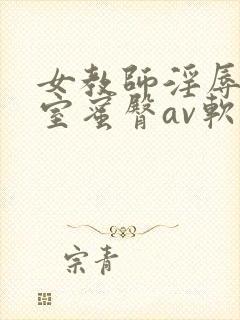 女教師淫辱
室蜜臀av軟
宗青